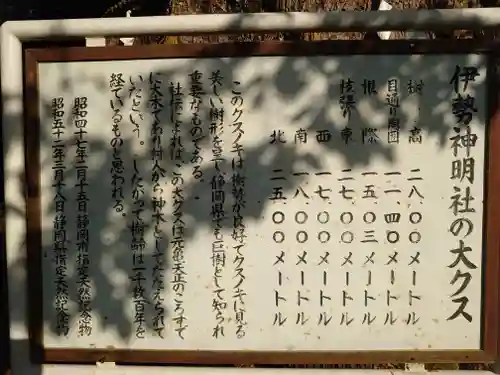 伊勢神明社の大クス
樹高 二八.〇〇メートル
目通り周囲 一一.四〇メートル
根際 一五.〇三メートル
枝張り 東 二七.〇〇メートル
西 一七.〇〇メートル
南 一八.〇〇メートル
北 二五.〇〇メートル
このクスノキは、樹勢が良好でクスノキに見る
美しい樹形を呈し、静岡県でも巨樹として知られ
重要なものである。
社伝によれば、この大クスは元亀天正のころすで
に大木であり村人から神木としてたたえられて
いたという。したがって樹齢は一千数百年を
経ているものと思われる。
昭和四十七年二月十五日静岡市指定天然紀念物
昭和五十二年三月十八日静岡県指定天然紀念物